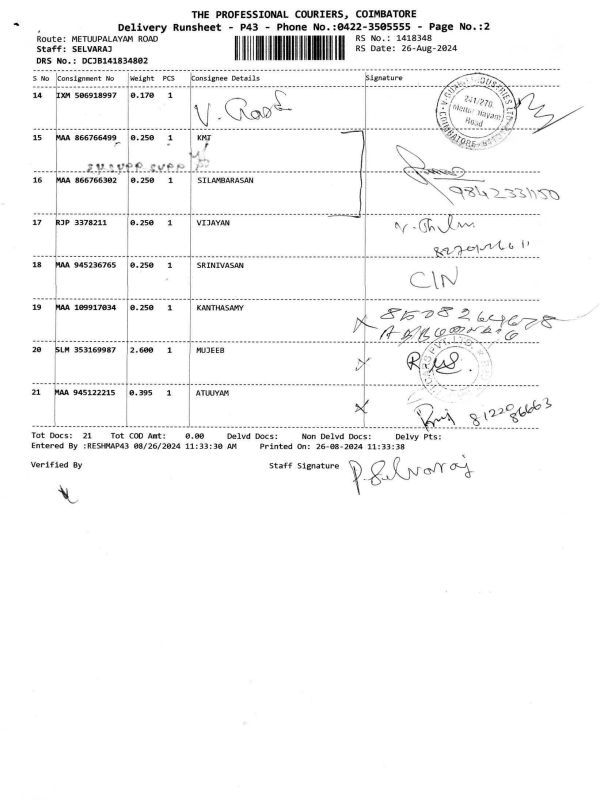 THE PROFESSIONAL COURIERS, COIMBATORE
Delivery Runsheet - P43 - Phone No.:0422-3505555 - Page No.:2
Route: METUUPALAYAM ROAD RS No.: 1418348
Staff: SELVARAJ RS Date: 26-Aug-2024
DRS No.: DCJB141834802
S No Consignment No Weight PCS Consignee Details Signature
14 IXM 506918997 0.170 1
15 MAA 866766499 0.250 1 KMT
16 MAA 866766302 0.250 1 SILAMBARASAN
9842233150
17 RJP 3378211 0.250 1 VIJAYAN
18 MAA 945236765 0.250 1 SRINIVASAN
CIN
19 MAA 109917034 0.250 1 KANTHASAMY
20 SLM 353169987 2.600 1 MUJEEB
21 MAA 945122215 0.395 1 ATUUYAM
81220
86663
Tot Docs: 21 Tot COD Amt: 0.00 Delvd Docs: Non Delvd Docs: Delvy Pts:
Entered By :RESHMAP43 08/26/2024 11:33:30 AM Printed On: 26-08-2024 11:33:38
Verified By Staff Signature P. Selvaraj